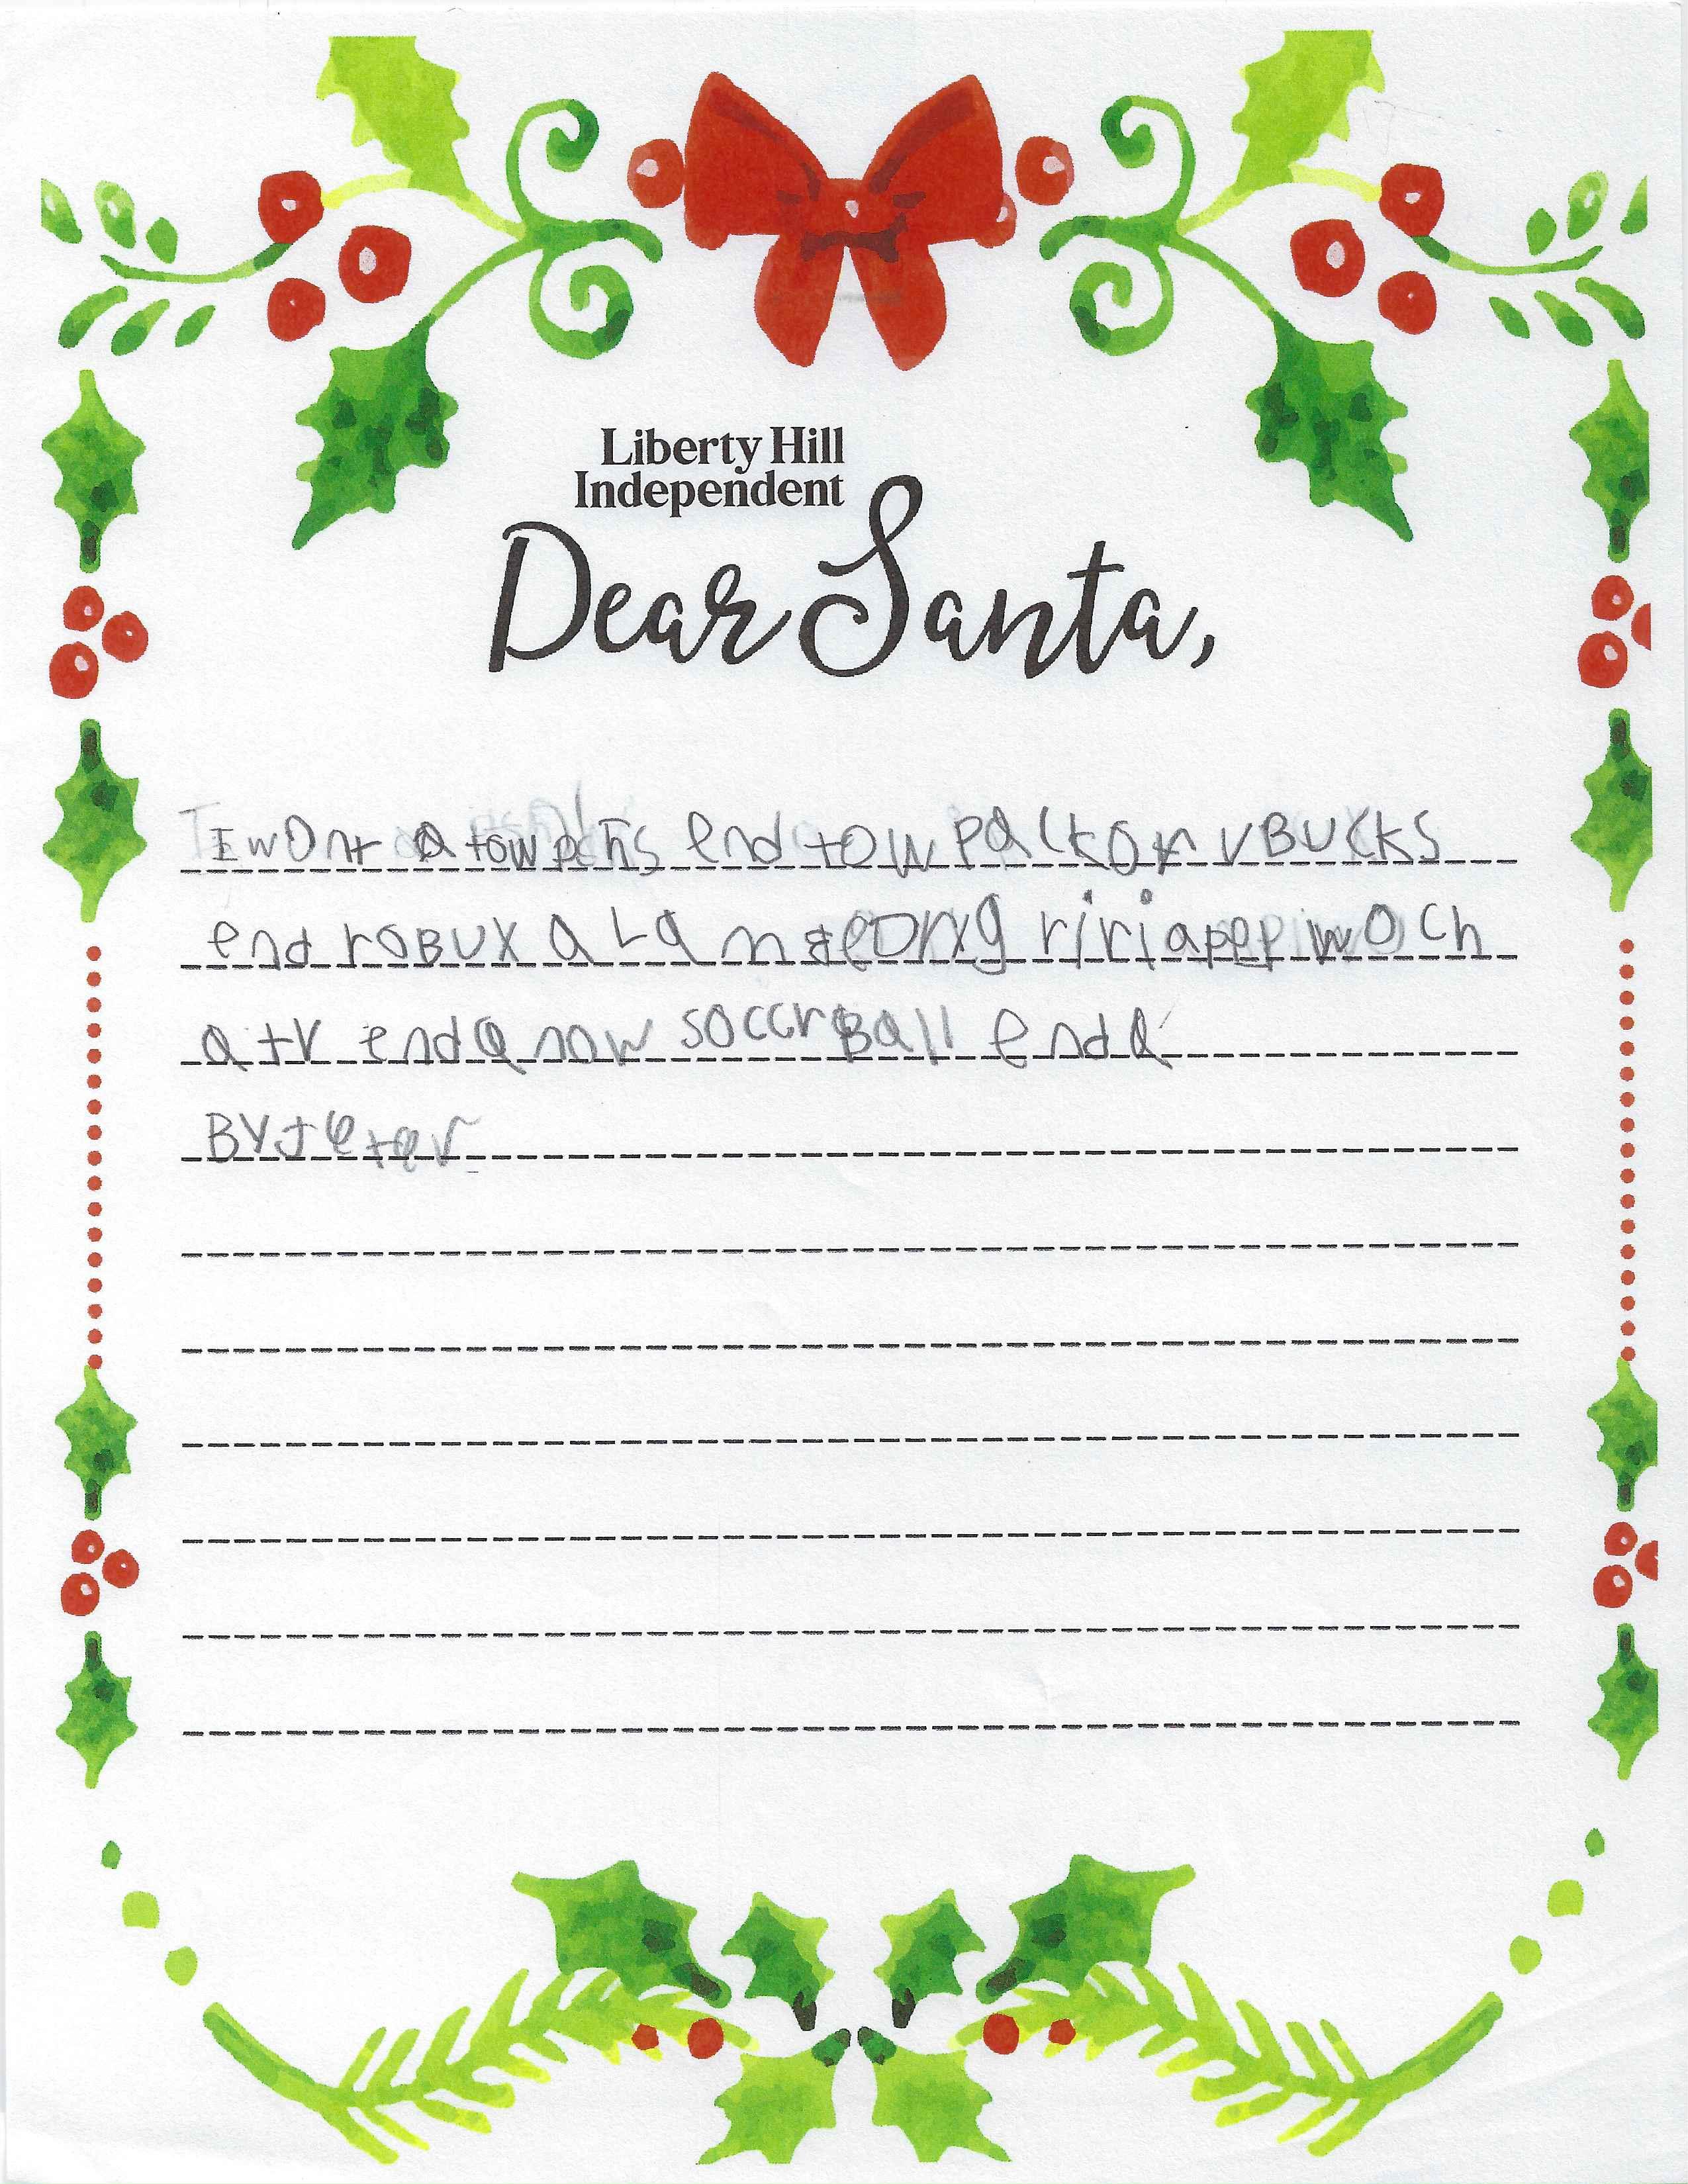 Liberty Hill
Independent
Dear Santa,
I wont a tow end tow pack vBUCKS
end roBUX a riri app woch
a tv end a now soccr Ball end a
BY Jeter